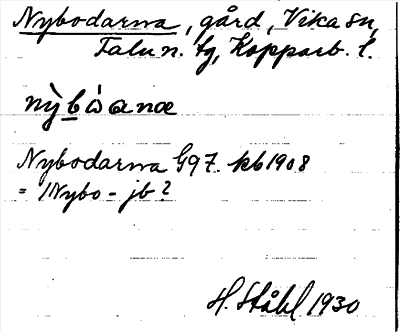 Nybodarna, gård, Vika sn,
Falu n. tg, Kopparb. l.
nỳbɷ̀ana
Nybodarna G97. kb 1908
= 1Nybo - jb?
H. Ståhl 1930